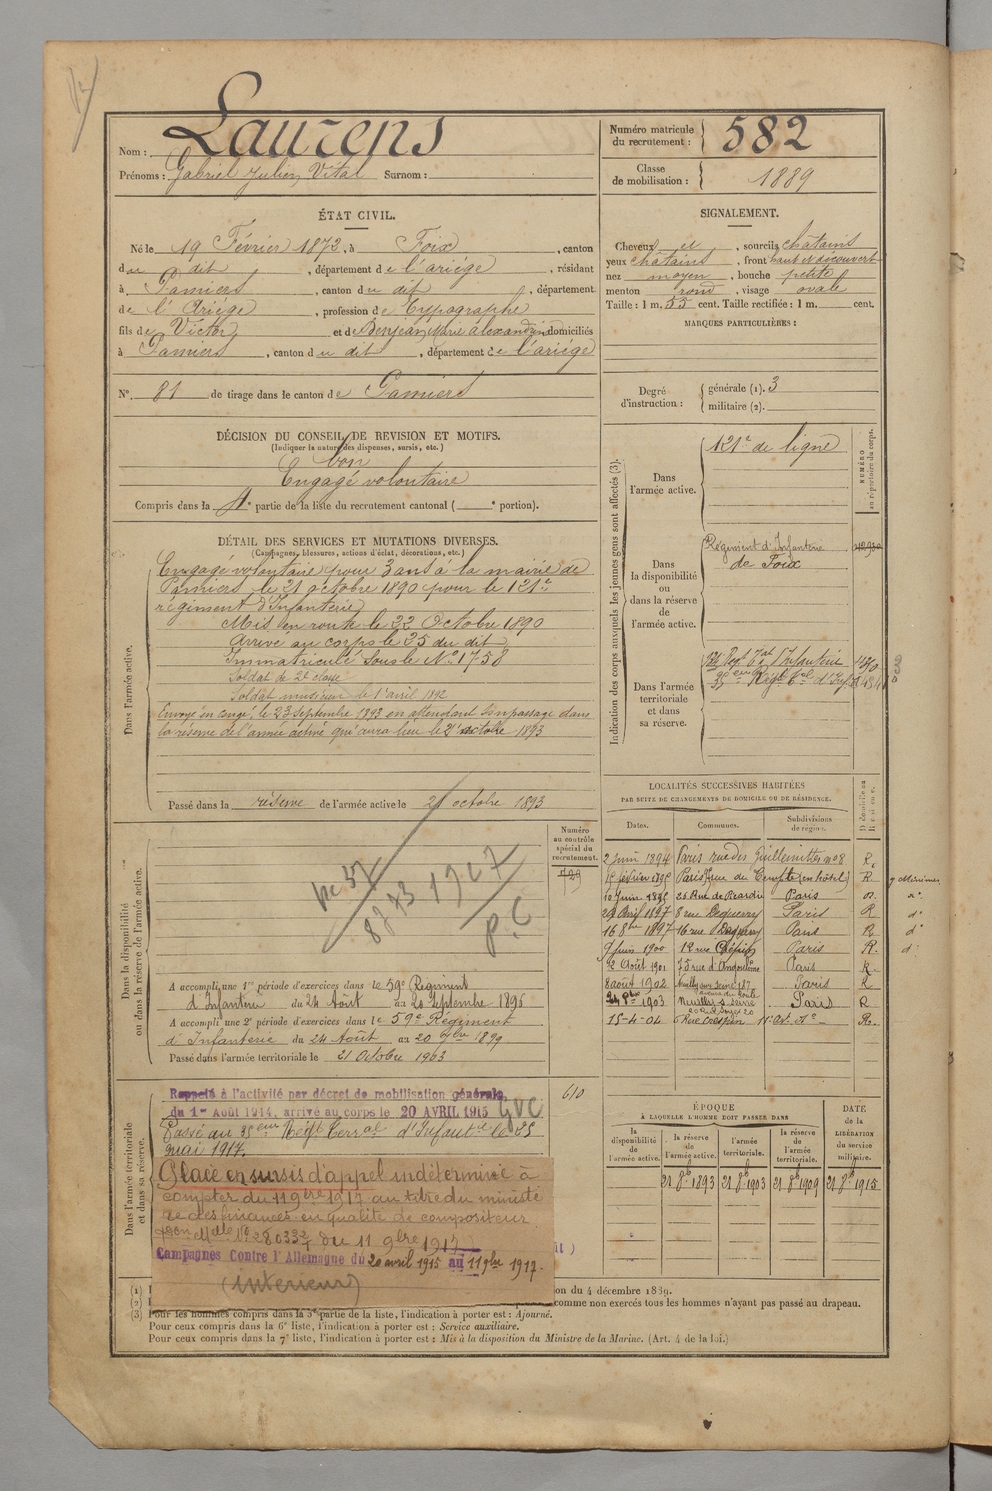 Nom : Laurens
Prénoms : Gabriel Julien Vital Surnom :
Numéro matricule du recrutement : 582
Classe de mobilisation : 1889
ÉTAT CIVIL.
Né le 19 Février 1872, à Foix, canton
du dit, département de l'ariége, résidant
à Pamiers, canton du dit, département
de l'Ariége, profession de Typographe
fils de Victor et de Benjean, Marie alexandrine domiciliés
à Pamiers, canton du dit, département de l'ariége
N°. 81 de tirage dans le canton de Pamiers
SIGNALEMENT.
Cheveux et, sourcils châtains
yeux châtains, front haut et découvert
nez moyen, bouche petite
menton rond, visage ovale
Taille : 1 m. 55 cent. Taille rectifiée : 1 m. cent.
MARQUES PARTICULIÈRES :
Degré d'instruction : générale (1). 3
militaire (2).
DÉCISION DU CONSEIL DE REVISION ET MOTIFS.
(Indiquer la nature des dispenses, sursis, etc.)
bon
Engagé volontaire
Compris dans la 4e partie de la liste du recrutement cantonal ( e portion).
DÉTAIL DES SERVICES ET MUTATIONS DIVERSES.
(Campagnes, blessures, actions d'éclat, décorations, etc.)
Dans l'armée active.
Engagé volontaire pour 3 ans à la mairie de
Pamiers le 21 octobre 1890 pour le 121e
régiment d'Infanterie
Mis en route le 22 Octobre 1890
Arrivé au corps le 25 du dit
Immatriculé sous le N° 1758
Soldat de 2e classe
Soldat musicien le 1er avril 1892
Envoyé en congé le 23 septembre 1893 en attendant son passage dans
la réserve de l'armée active qui aura lieu le 21 octobre 1893
Passé dans la réserve de l'armée active le 21 octobre 1893
Indication des corps auxquels les jeunes gens sont affectés (3).
NUMÉRO au répertoire du corps.
Dans l'armée active.
121e de ligne
Dans la disponibilité ou dans la réserve de l'armée active.
Régiment d'Infanterie
de Foix
Dans l'armée territoriale et dans sa réserve.
LOCALITÉS SUCCESSIVES HABITÉES
PAR SUITE DE CHANGEMENTS DE DOMICILE OU DE RÉSIDENCE.
Dates. Communes. Subdivisions de région.
2 juin 1894 Paris rue des Guillemittes n° 8 R.
février 1895 Paris rue du Temple (en hôtel) R
10 Juin 1895 25 Rue de Picardie Paris
24 Avril 1897 8 rue Deguerry Paris R d°
16 8bre 1897 16 rue Deguerry Paris R d°
9 juin 1900 12 rue Crespin Paris R. d°
2 Août 1901 75 rue d'Angoulême Paris R.
8 août 1902 Neuilly sur seine 187 avenue du Roule Paris R
1903 Neuilly s. seine Paris R
15-4-04 6 Rue Crespin 11e arr. d° R.
Dans la disponibilité ou dans la réserve de l'armée active.
Numéro au contrôle spécial du recrutement.
8873 1927
P.C
A accompli une 1re période d'exercices dans le 59e Régiment
d'Infanterie du 24 Août au 20 Septembre 1896
A accompli une 2e période d'exercices dans le 59e Régiment
d'Infanterie du 24 Août au 20 7bre 1899
Passé dans l'armée territoriale le 21 Octobre 1903
Dans l'armée territoriale et dans sa réserve.
610
Rappelé à l'activité par décret de mobilisation générale
du 1er Août 1914, arrivé au corps le 20 AVRIL 1915
GVC
Passé au 35eme Régt Terral d'Infantie le 25
mai 1917.
Placé en sursis d'appel indéterminé à
compter du 11 9bre 1917 au titre du ministè
re des finances en qualité de compositeur.
du 11 9bre 1917
Campagnes Contre l'Allemagne du 20 avril 1915 au 11 9bre 1917.
(intérieur)
ÉPOQUE
À LAQUELLE L'HOMME DOIT PASSER DANS
la disponibilité de l'armée active. la réserve de l'armée active. l'armée territoriale. la réserve de l'armée territoriale.
DATE de la LIBÉRATION du service militaire.
21 8b 1893 21 8b 1903 21 8b 1909 21 8b 1915
(1)
on du 4 décembre 1889.
(2)
comme non exercés tous les hommes n'ayant pas passé au drapeau.
(3) Pour les hommes compris dans la 3e partie de la liste, l'indication à porter est : Ajourné.
Pour ceux compris dans la 6e liste, l'indication à porter est : Service auxiliaire.
Pour ceux compris dans la 7e liste, l'indication à porter est : Mis à la disposition du Ministre de la Marine. (Art. 4 de la loi.)